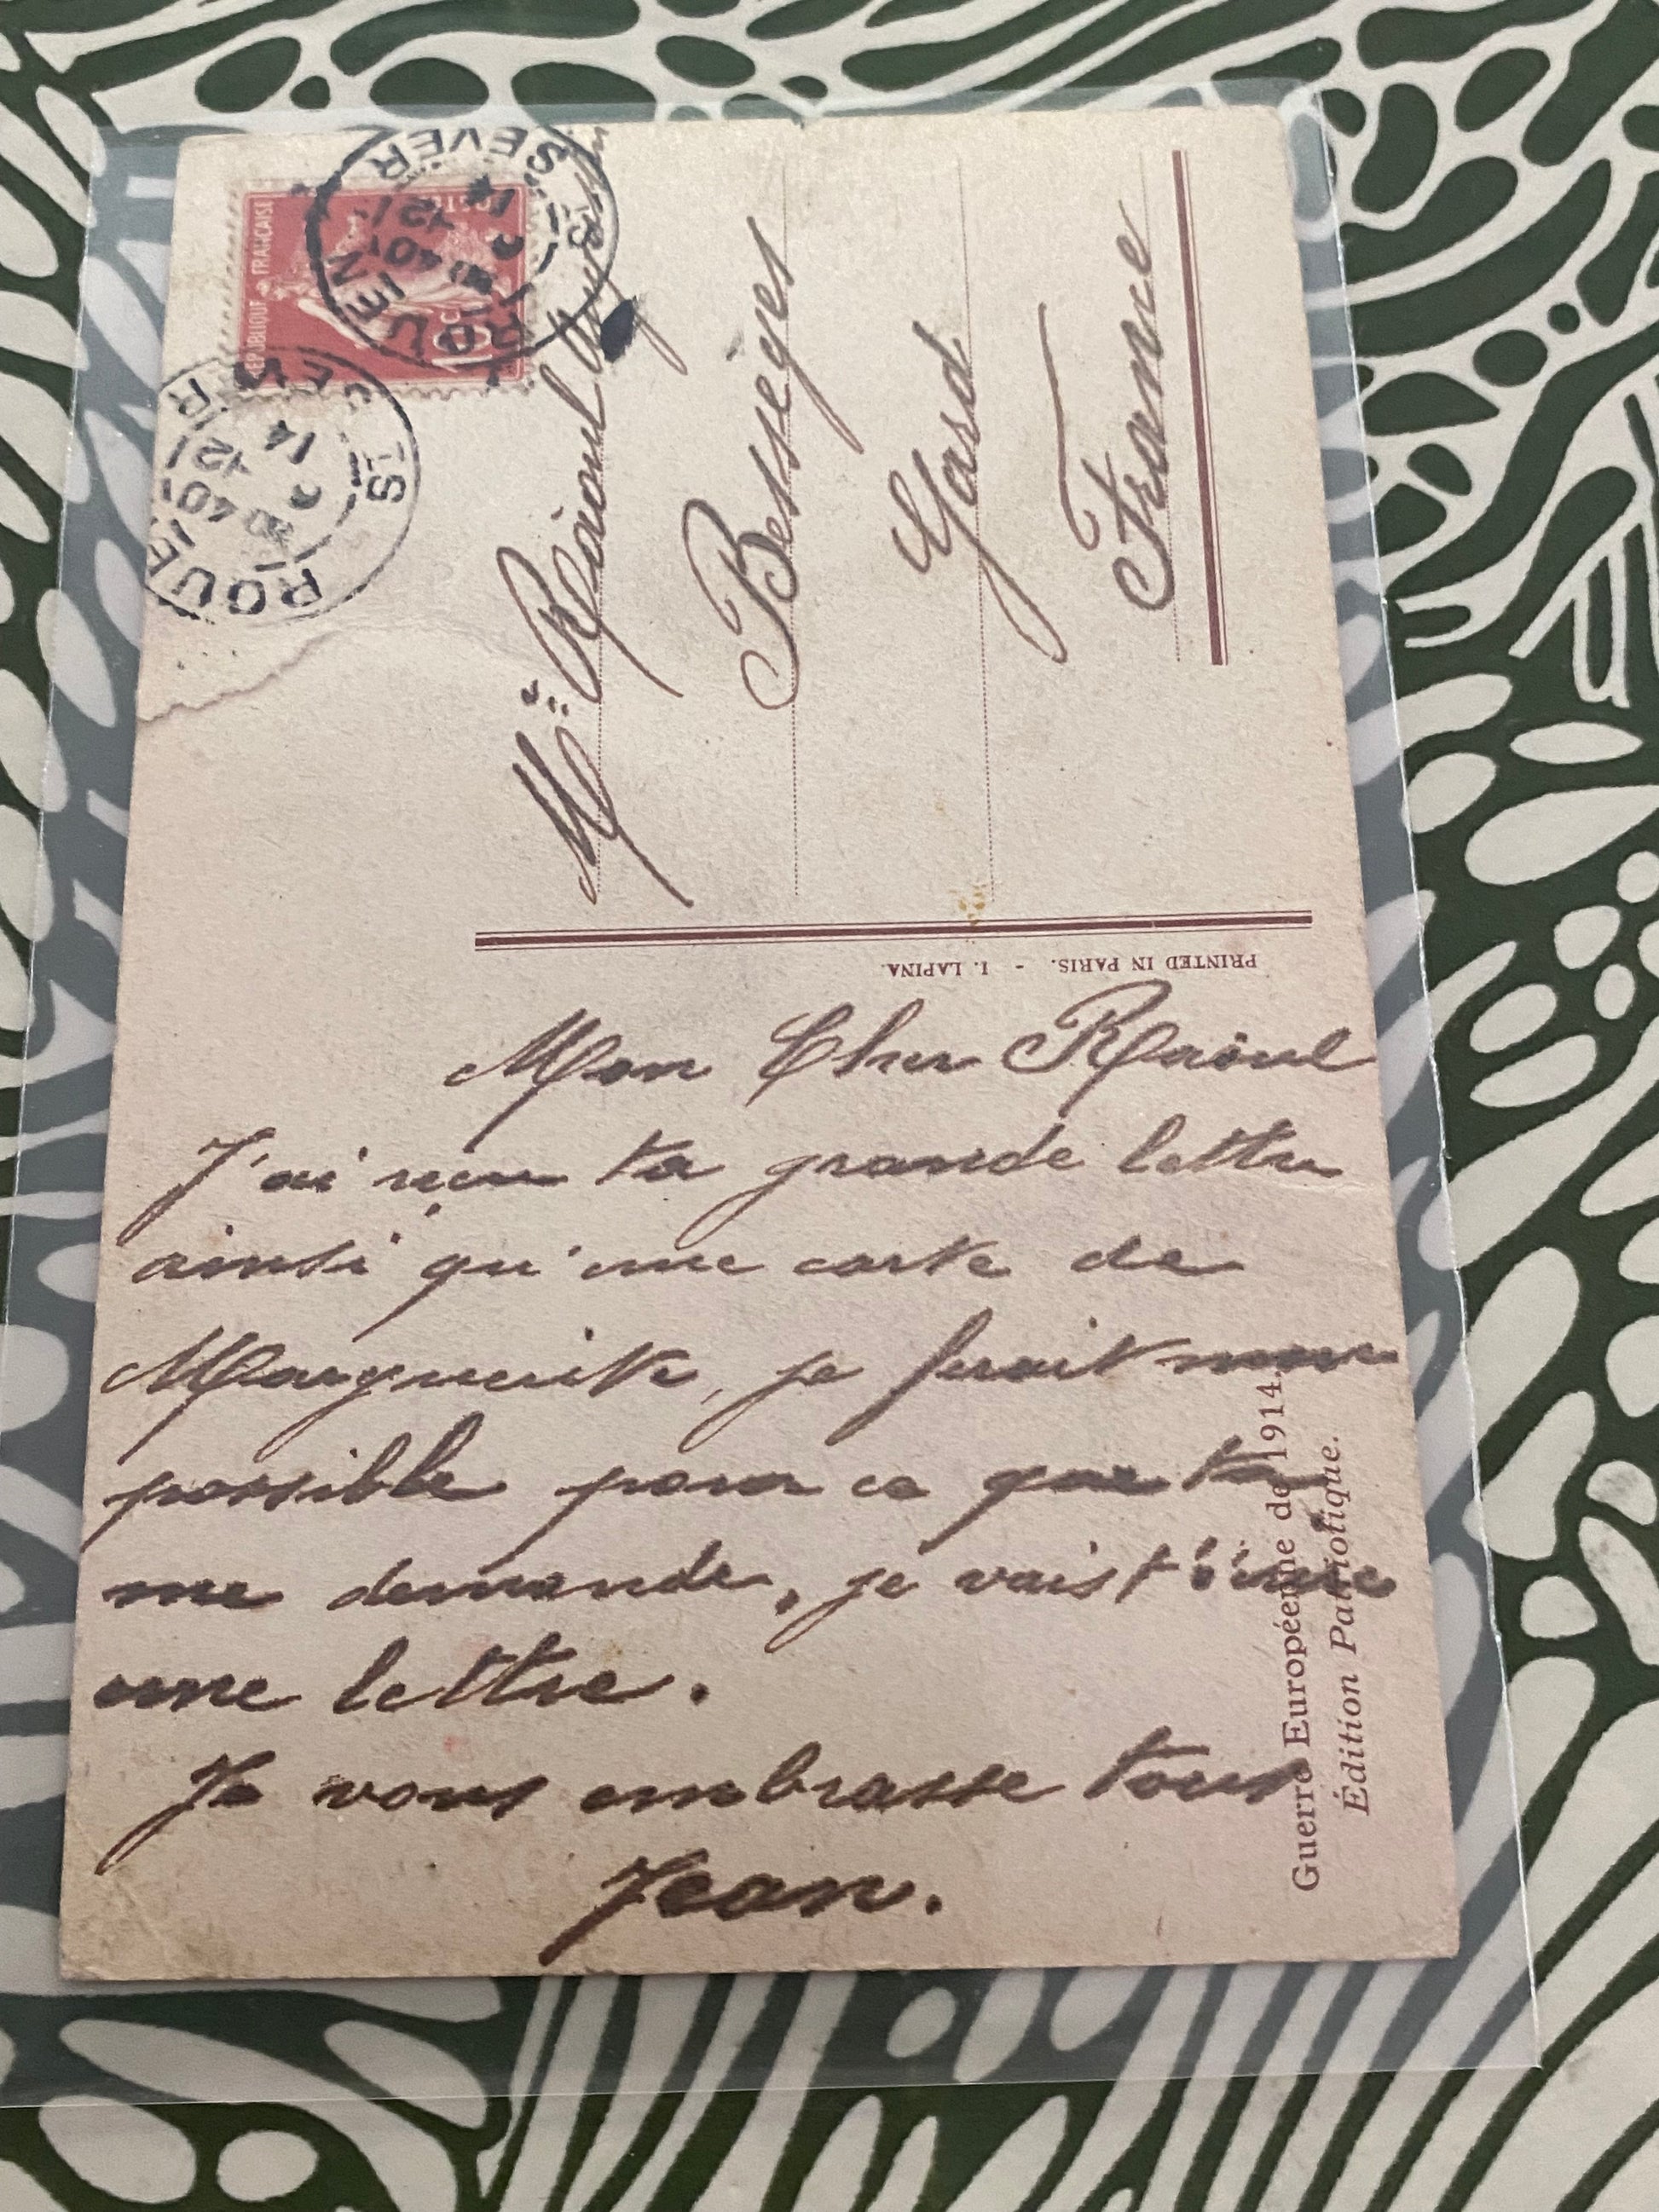 Mon Cher Raoul
J'ai reçu ta grande lettre
ainsi qu'une carte de
Marguerite, je ferait mon
possible pour ce que tu
me demande, je vais t'
une lettre.
Je vous embrasse tous
Jean.
Guerre Européenne de 1914.
Édition Patriotique.
PRINTED IN PARIS. - I. LAPINA.
Mr Raoul
Bessèges
Gard
France
REPUBLIQUE FRANÇAISE
10
ROUEN ST SEVER
12 40
14
ROUEN ST SEVER
12 40
14